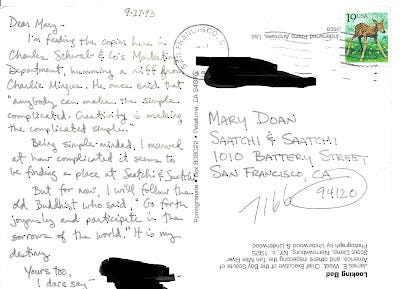 9-27-93
Dear Mary -
I'm feeding the copier here in
Charles Schwab & Co's Marketing
Department, humming a riff from
Charlie Mingus. He once said that
"anybody can make the simple
complicated. Creativity is making
the complicated simple."
Being simple-minded, I marvel
at how complicated it seems to
be finding a place at Saatchi & Saatchi.
But for now, I will follow the
old Buddhist who said, "Go forth
joyously and participate in the
sorrows of the world." It is my
destiny.
Yours too,
I dare say -
SAN FRANCISCO, C
19
USA
MARY DOAN
SAATCHI & SAATCHI
1010 BATTERY STREET
SAN FRANCISCO, CA
94120
7166
Looking Bad
James E. West, Chief Executive of the Boy Scouts of
America and others inspecting the Ten Mile River
Scout Camp, Narrowsburg, NY, c. 1929.
Photograph by Underwood & Underwood
Underwood Photo Archives, Ltd.
Pomegranate • Box 808022 • Petaluma, CA 94975